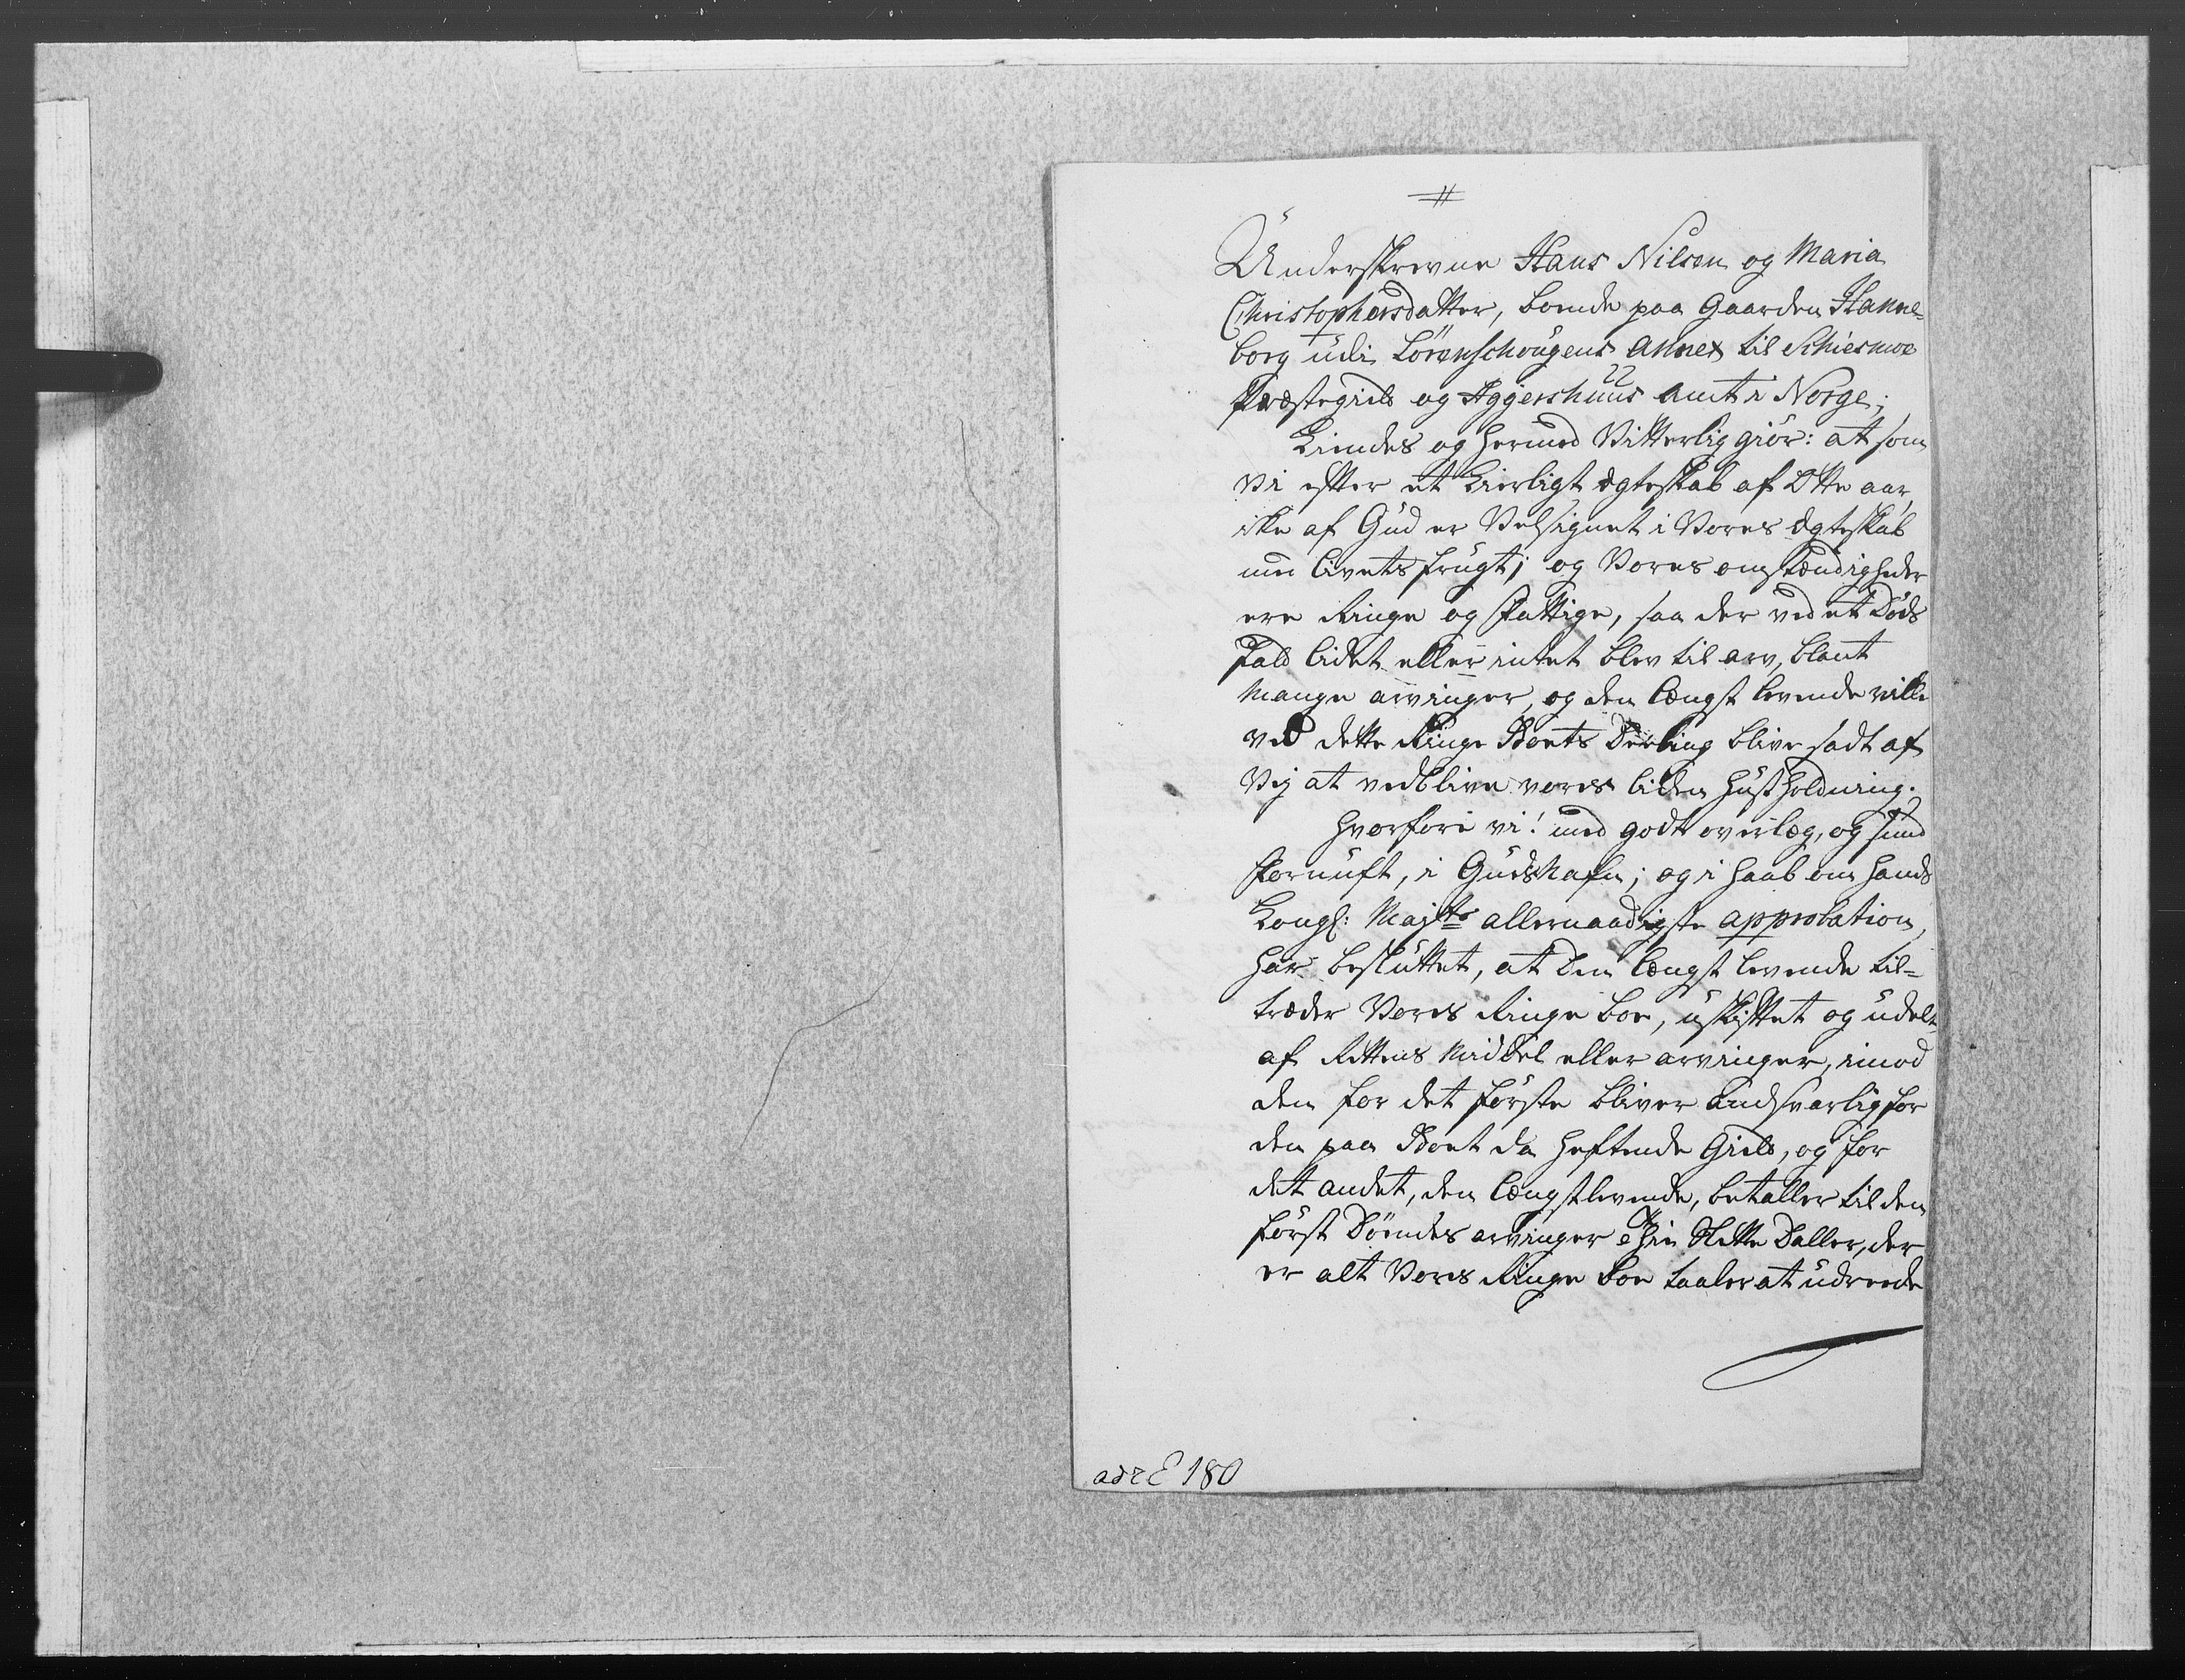 Underskrevne Hans Nilsen og Maria
Christophersdatter, boende paa Gaarden Hanne-
borg udi Lörenschougens Annex til Schiesmoe
Præstegield og Aggershuus Amt i Norge;
Kiendes og hermed Vitterlig giör: at som
Vi efter et Kierligt Ægteskab af Otte aar,
ikke af Gud er Velsignet i Vores Ægteskab
med Livets frugt; og Vores omstændigheder
ere Ringe og Fattige, saa der ved et Döds
Fald Lidet eller intet blev til arv, blant
Mange arvinger, og den længst levende ville
ved dette Ringe Boets Deeling blive sadt af
Vej at vedblive vores liden Huusholdning.
Hvorfore vi! med godt overlæg, og Sund
Fornuft, i Guds Nafn; og i Haab om Hands
Kongl: Majts allernaadigste approbation,
har besluttet, at Den længst levende til-
træder Vores Ringe boe, uskiftet og udelt
af Rettens Middel eller arvinger, imod
den for det förste bliver andsvarlig for
den paa Boet da heftende Gield, og for
det andet, den længstlevende, betaller til den
först Döendes arvinger Slette Daller, der
er alt Vores Ringe boe taaler at udreede
180